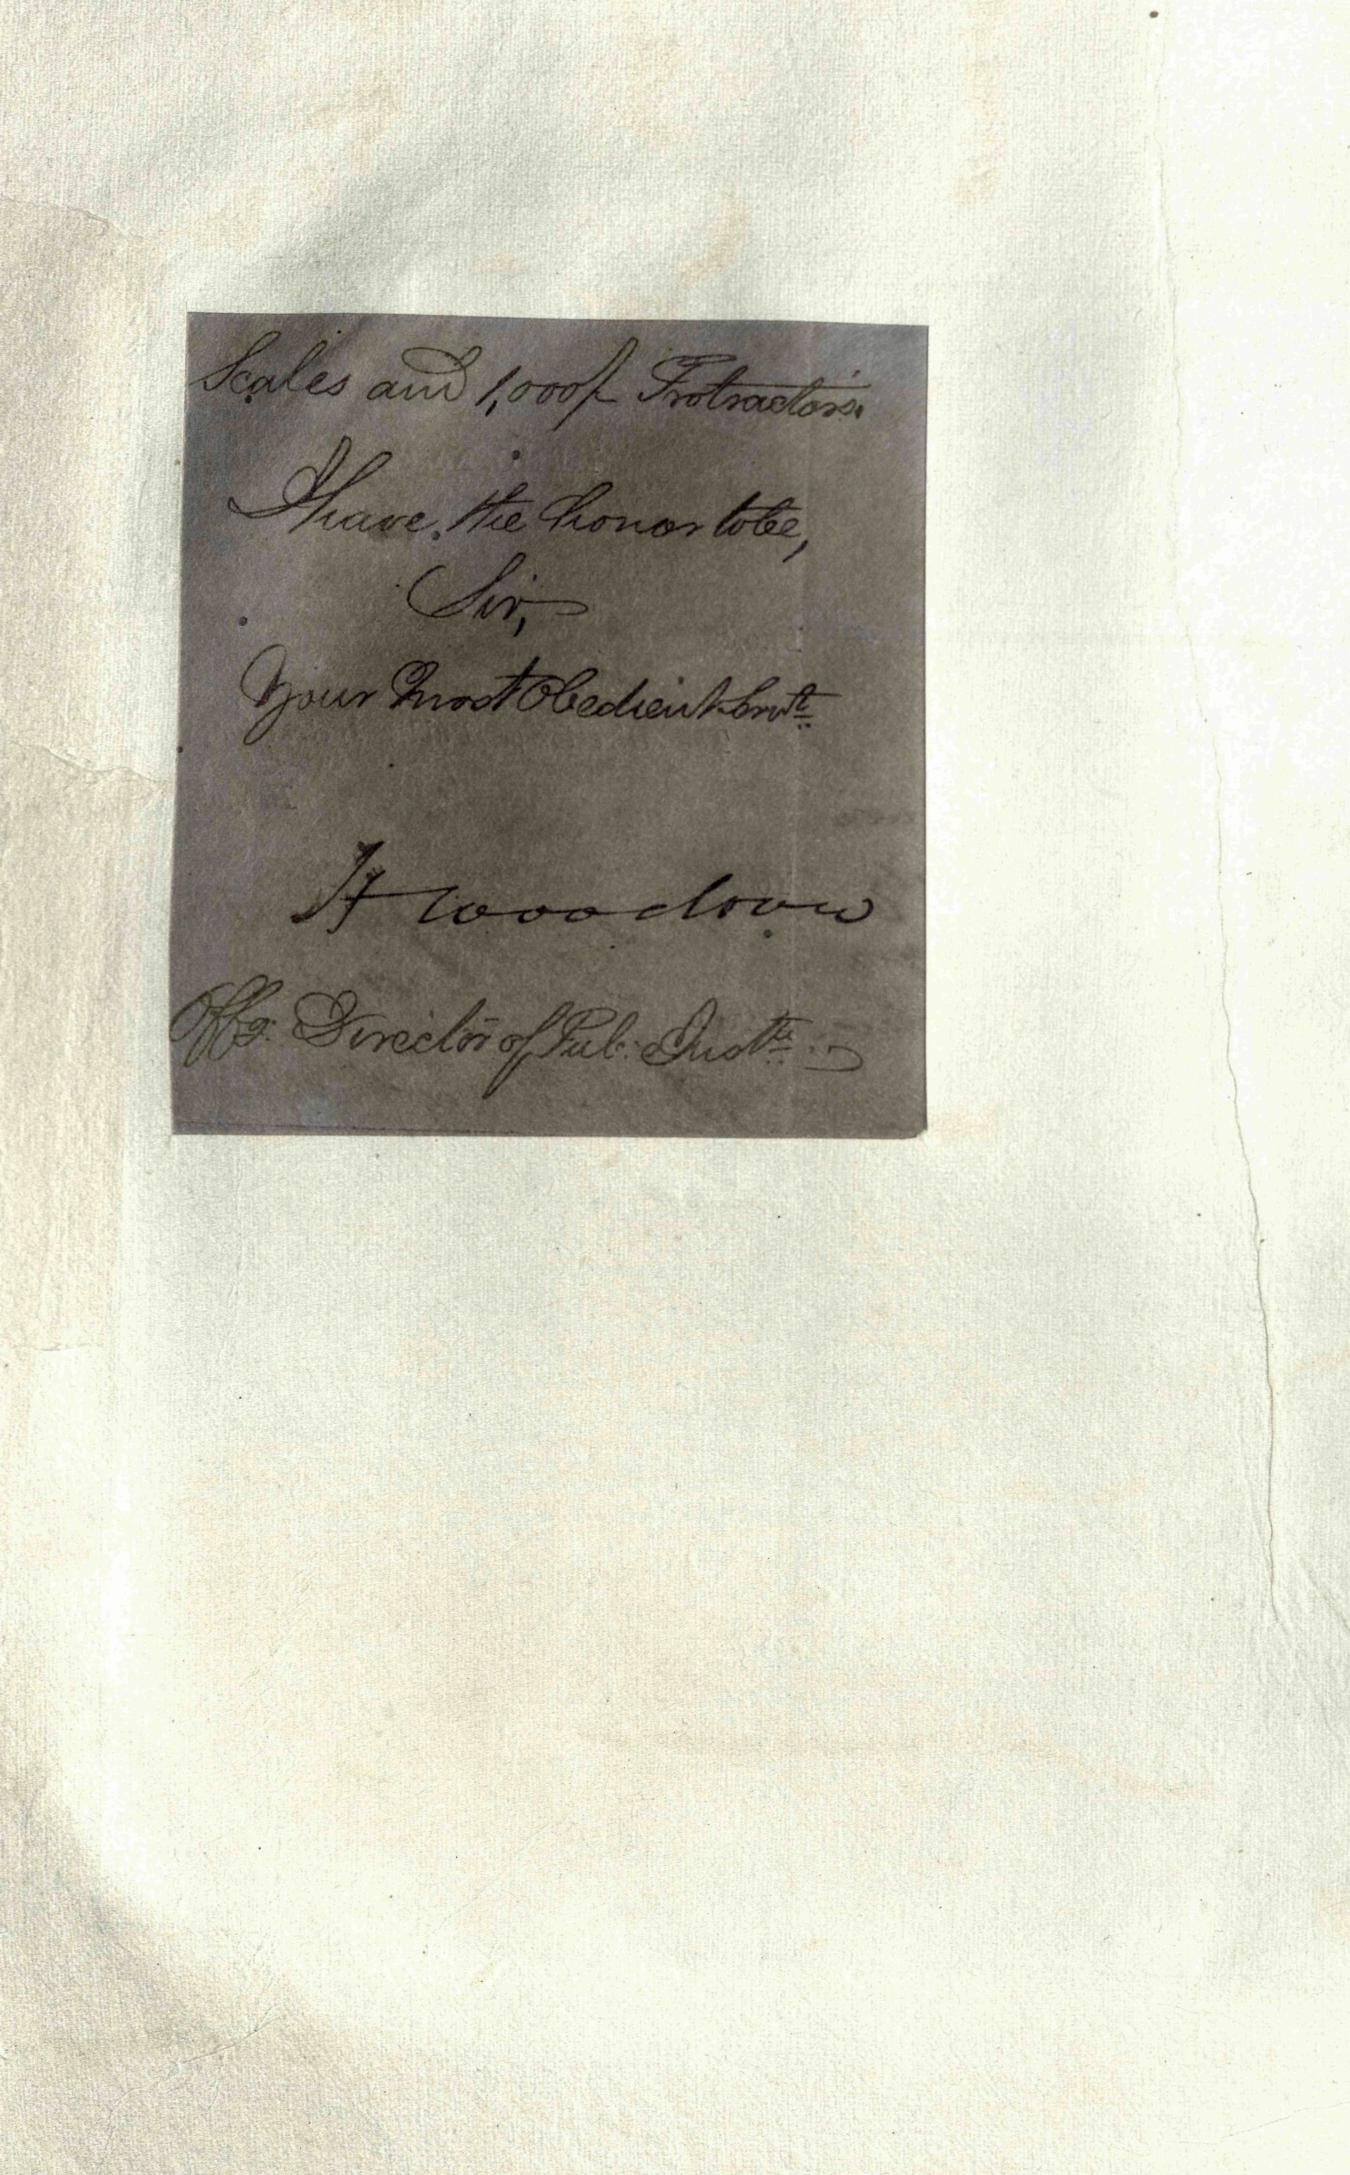 Scales and 1,000/- Protractors.
I have the honor to be,
Sir,
Your Most Obedient Servt.
H Woodrow
Offg. Director of Pub. Instn.